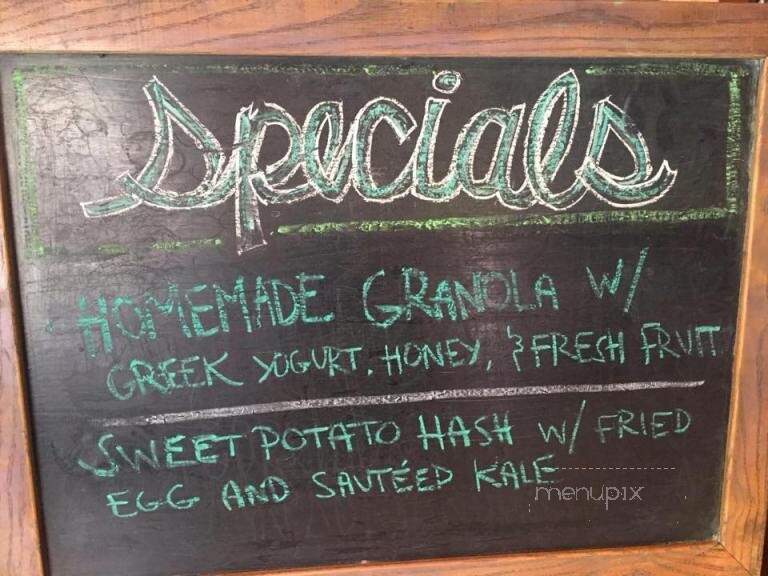 Specials
HOMEMADE GRANOLA W/
GREEK YOGURT, HONEY, & FRESH FRUIT
SWEET POTATO HASH W/ FRIED
EGG AND SAUTÉED KALE
menupix